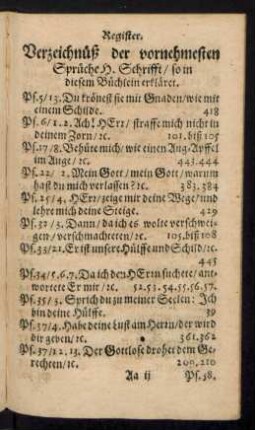 Register.
Verzeichnüß der vornehmesten
Sprüche H. Schrifft/ so in
diesem Büchlein erkläret.
Ps. 5/13. Du krönest sie mit Gnaden/ wie mit
einem Schilde. 418
Ps. 6/1.2. Ach! HErr/ straffe mich nicht in
deinem Zorn/ ꝛc. 101. biß 105
Ps. 17/8. Behüte mich/ wie einen Aug-Apffel
im Auge/ ꝛc. 443.444
Ps. 22/1. Mein Gott/ mein Gott/ warum
hast du mich verlassen? ꝛc. 383.384
Ps. 25/4. HErr/ zeige mir deine Wege/ und
lehre mich deine Steige. 429
Ps. 32/3. Dann/ da ich es wolte verschwei-
gen/ verschmachteten/ ꝛc. 105. biß 108
Ps. 33/21. Er ist unsere Hülffe und Schild/ ꝛc.
445
Ps. 34/5.6.7. Da ich den HErrn suchete/ ant-
wortete Er mir/ ꝛc. 52.53.54.55.56.57.
Ps. 35/3. Sprich du zu meiner Seelen: Ich
bin deine Hülffe. 39
Ps. 37/4. Habe deine Lust am Herrn/ der wird
dir geben/ ꝛc. 361.362
Ps. 37/12.13. Der Gottlose drohet dem Ge-
rechten/ ꝛc. 209.210
Aa ij Ps. 38.